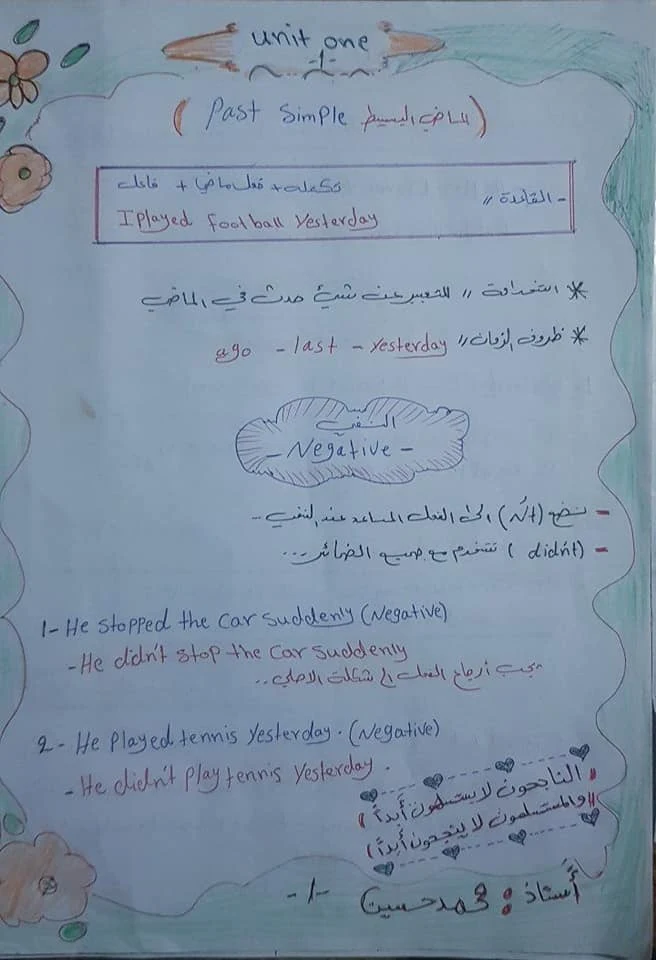 unit one
-1-
( Past Simple الماضي البسيط )
- القاعدة // فاعل + فعل ماضي + تكملة
I played football yesterday
* استخدامة // للتعبير عن شيء حدث في الماضي
* ظروف الزمان // ago - last - yesterday
النفي
- Negative -
- نضع (n't) الى الفعل المساعد عند النفي ..
- (didn't) تستخدم مع جميع الضمائر ...
1- He stopped the car suddenly (Negative)
- He didn't stop the car suddenly
يجب أرجاع الفعل الى شكله الاصلي ..
2- He played tennis yesterday. (Negative)
- He didn't play tennis yesterday.
" الناجحون لا يستسلمون أبداً )
" والمستسلمون لا ينجحون أبداً )
أستاذ : محمد حسين
-1-